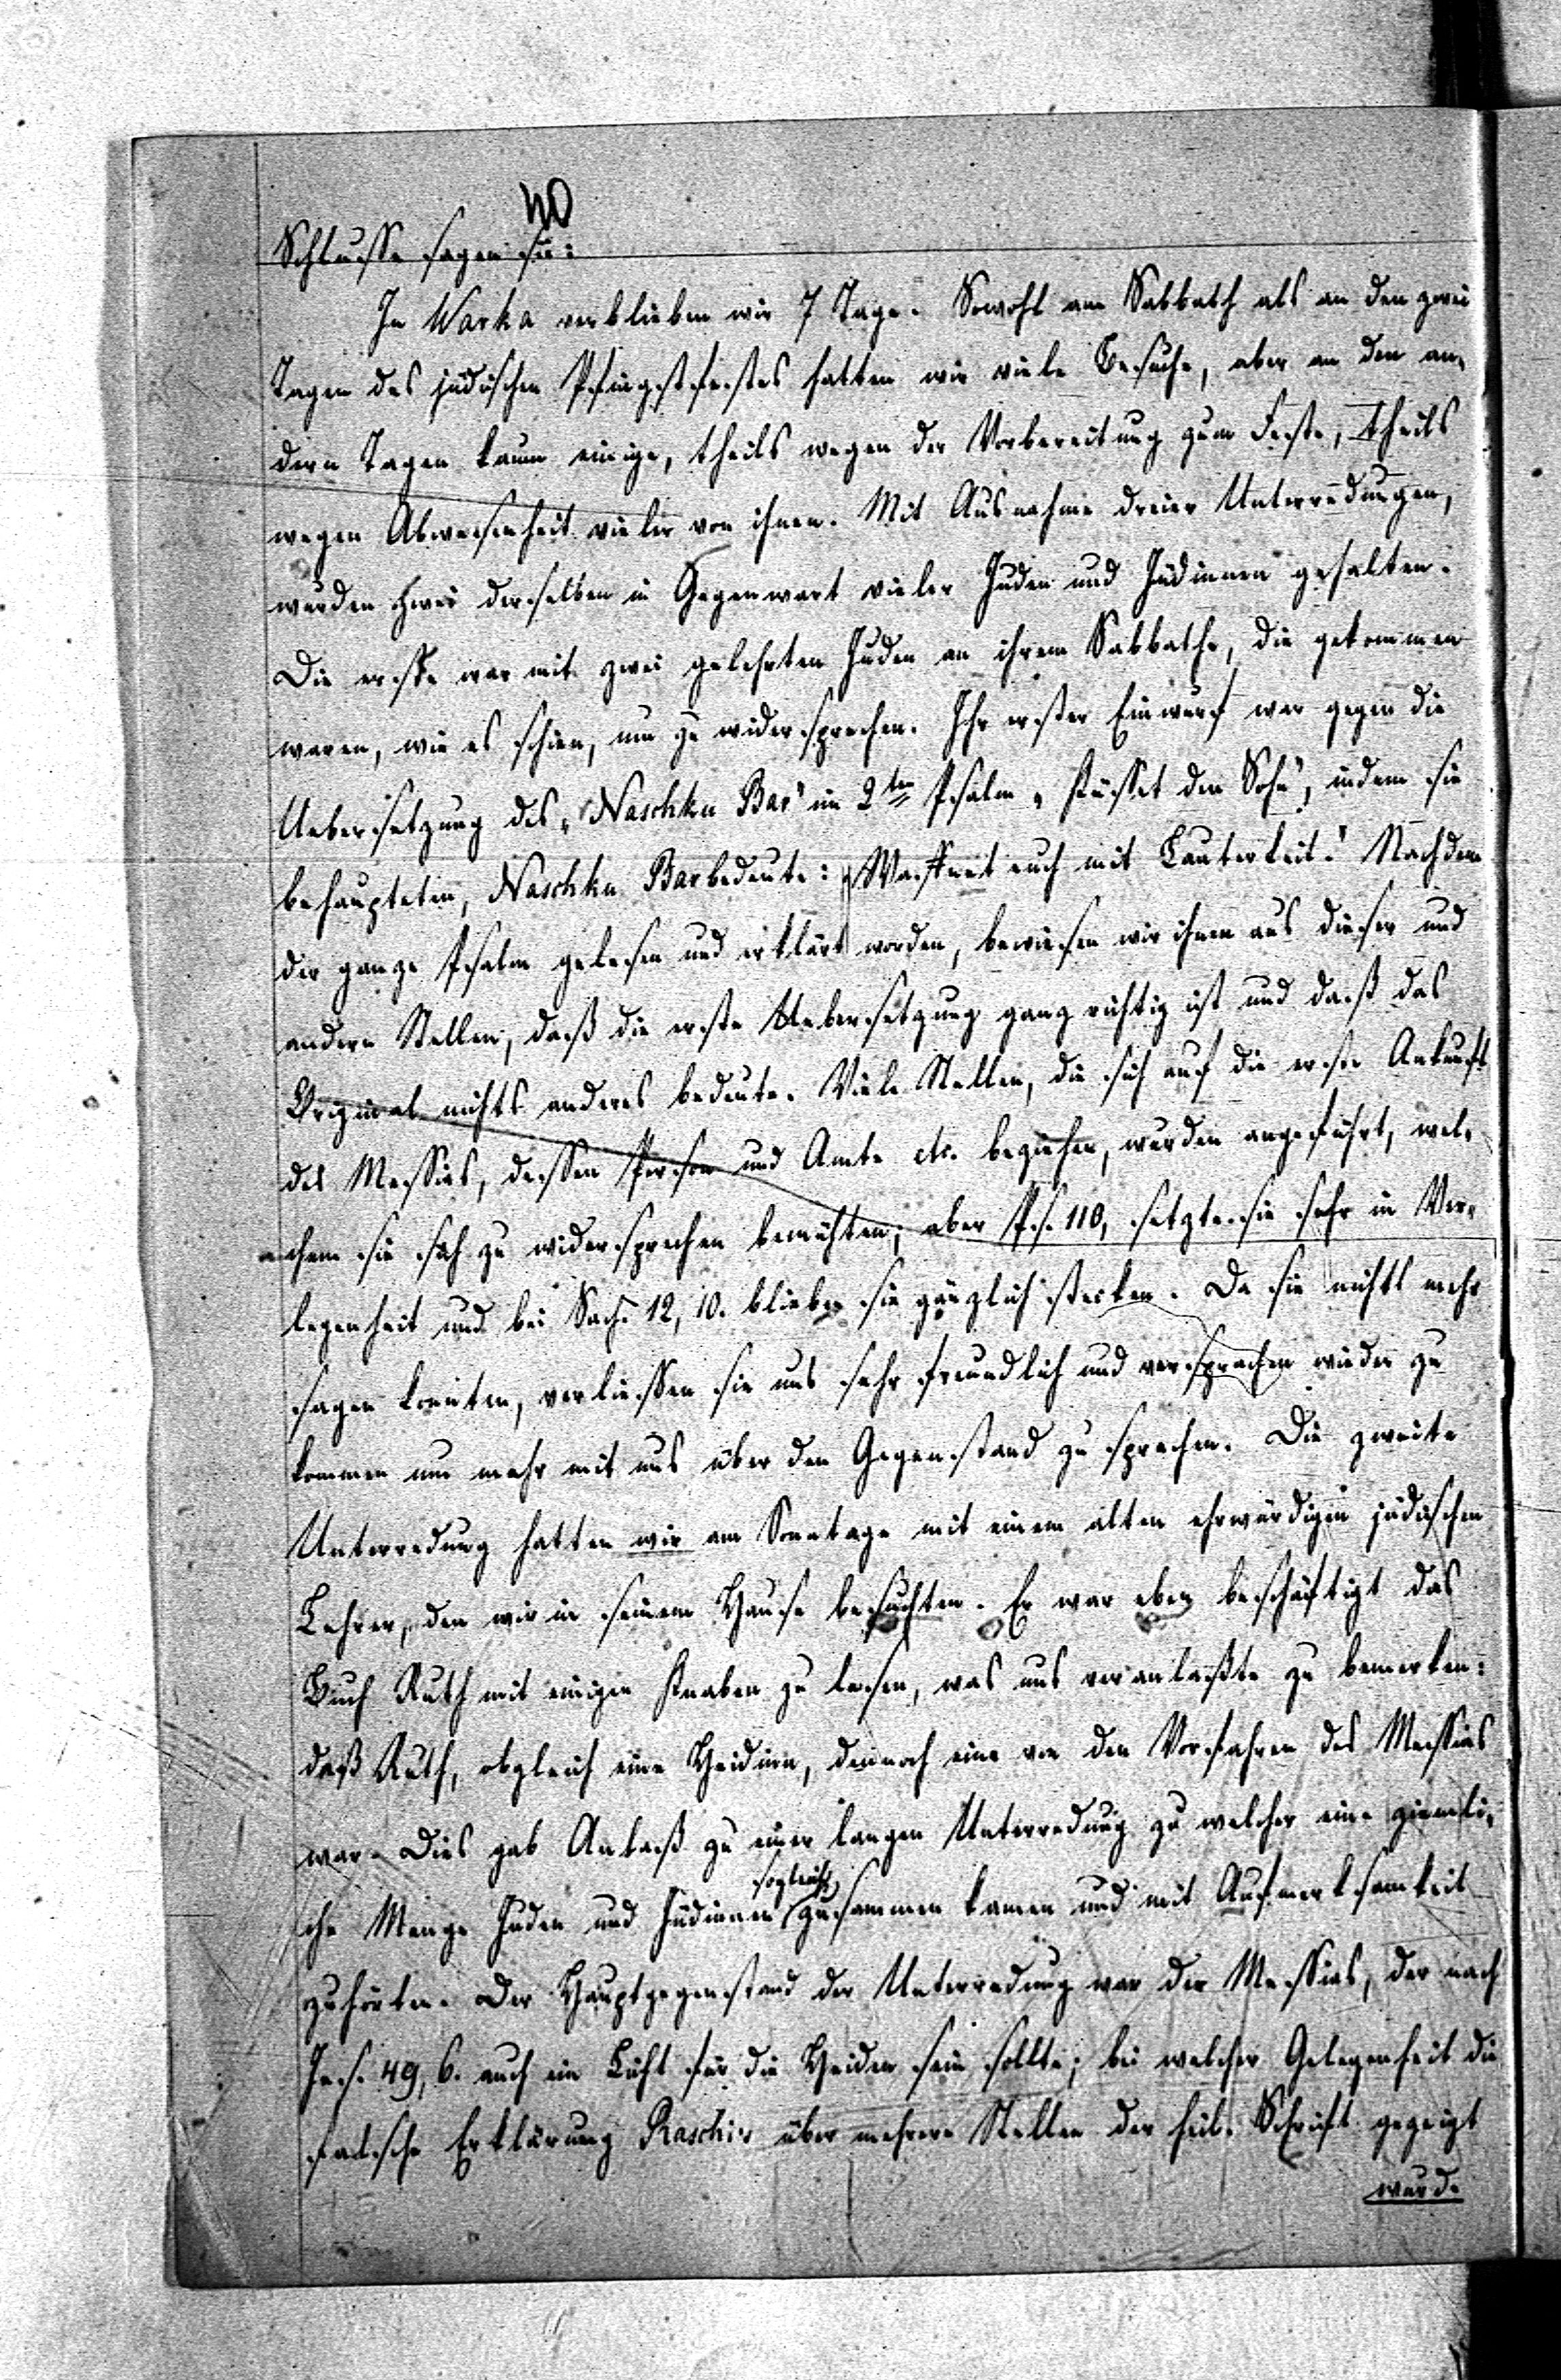 40
Schlusse sagen sie:
In Warka verblieben wir 7 Tage. Sowohl am Sabbath als an den zwei
Tagen des jüdischen Pfingstfestes hatten wir viele Besuche, aber an den an-
dern Tagen kaum einige, theils wegen der Vorbereitung zum Feste, theils
wegen Abwesenheit vieler von ihnen. Mit Ausnahme dreier Unterredungen,
wurden zwei derselben in Gegenwart vieler Juden und Jüdinnen gehalten.
Die erste war mit zwei gelehrten Juden an ihrem Sabbathe, die gekommen
waren, wie es schien, um zu widersprechen. Ihr erster Einwurf war gegen die
Uebersetzung des „Naschku Bar" im 2ten Psalm „küsset den Sohn", indem sie
behaupteten, Naschku Bar bedeute: „Waffnet euch mit Lauterkeit." Nachdem
der ganze Psalm gelesen und erklärt worden, bewiesen wir ihnen aus dieser und
andern Stellen, daß die erste Uebersetzung ganz richtig ist und daß das
Original nichts anderes bedeute. Viele Stellen, die sich auf die erste Ankunft
des Messias, dessen Person und Amte etc. beziehen, wurden angeführt, wel-
chem sie sich zu widersprechen bemühten; aber Ps. 110, setzte sie sehr in Ver-
legenheit und bei Sach. 12, 10. blieben sie gänzlich stecken. Da sie nichts mehr
sagen konnten, verliessen sie uns sehr freundlich und versprachen wieder zu
kommen um mehr mit uns über den Gegenstand zu sprechen. Die zweite
Unterredung hatten wir am Sonntage mit einem alten ehrwürdigen jüdischen
Lehrer, den wir in seinem Hause besuchten. Er war eben beschäftigt das
Buch Ruth mit einigen Knaben zu lesen, was uns veranlaßte zu bemerken:
daß Ruth, obgleich eine Heidinn, dennoch eine von den Vorfahren des Messias
war. Dies gab Anlaß zu einer langen Unterredung zu welcher eine ziemli-
sogleich
che Menge Juden und Jüdinnen zusammen kamen und mit Aufmerksamkeit
zuhörten. Der Hauptgegenstand der Unterredung war der Messias, der nach
Jes. 49, 6. auch ein Licht für die Heiden sein sollte; bei welcher Gelegenheit die
falsche Erklärung Raschis über mehrere Stellen der heil. Schrift gezeigt
wurde